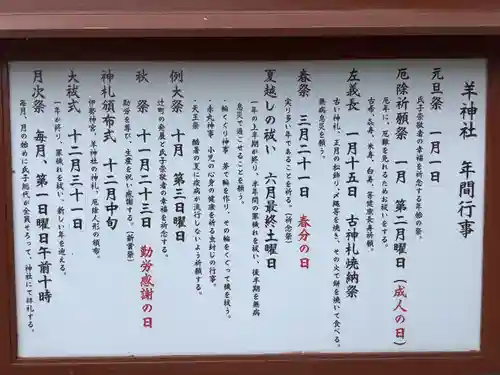 羊神社 年間行事
元旦祭 一月一日
氏子崇敬者の幸福を祈念する年始の祭。
厄除祈願祭 一月 第二月曜日(成人の日)
厄年に、厄難を免れるためお祓いをする。
古希、喜寿、米寿、白寿、等健康長寿祈願。
左義長 一月十五日 古神札焼納祭
古い神札、正月の松飾り、〆縄等を焼き、その火で餅を焼いて食べる。
無病息災を願う。
春祭 三月二十一日 春分の日
実り多い年であることを祈る。(祈念祭)
夏越しの祓い 六月最終土曜日
一年の上半期が終り、半年間の罪穢れを祓い、後半期を無病
息災で過ごせるよう願う。
・輪くぐり神事 茅で輪を作り、その輪をくぐって穢を祓う。
・赤丸神事 小児の心身の健康を祈る虫封じの行事。
・天王祭 酷暑の夏に疫病が流行しないよう祈願する。
例大祭 十月 第二日曜日
辻町の発展と氏子崇敬者の幸福を祈念する。
秋祭 十一月二十三日 勤労感謝の日
勤労を尊び、生産を祝い感謝する。(新嘗祭)
神札頒布式 十二月中旬
伊勢神宮、羊神社の神札、厄除人形の頒布。
大祓式 十二月三十一日
一年が終り、罪穢れを祓い、新しい年を迎える。
月次祭 毎月、第一日曜日午前十時
毎月、月の始めに氏子総代が全員そろって、神社にて拝礼する。